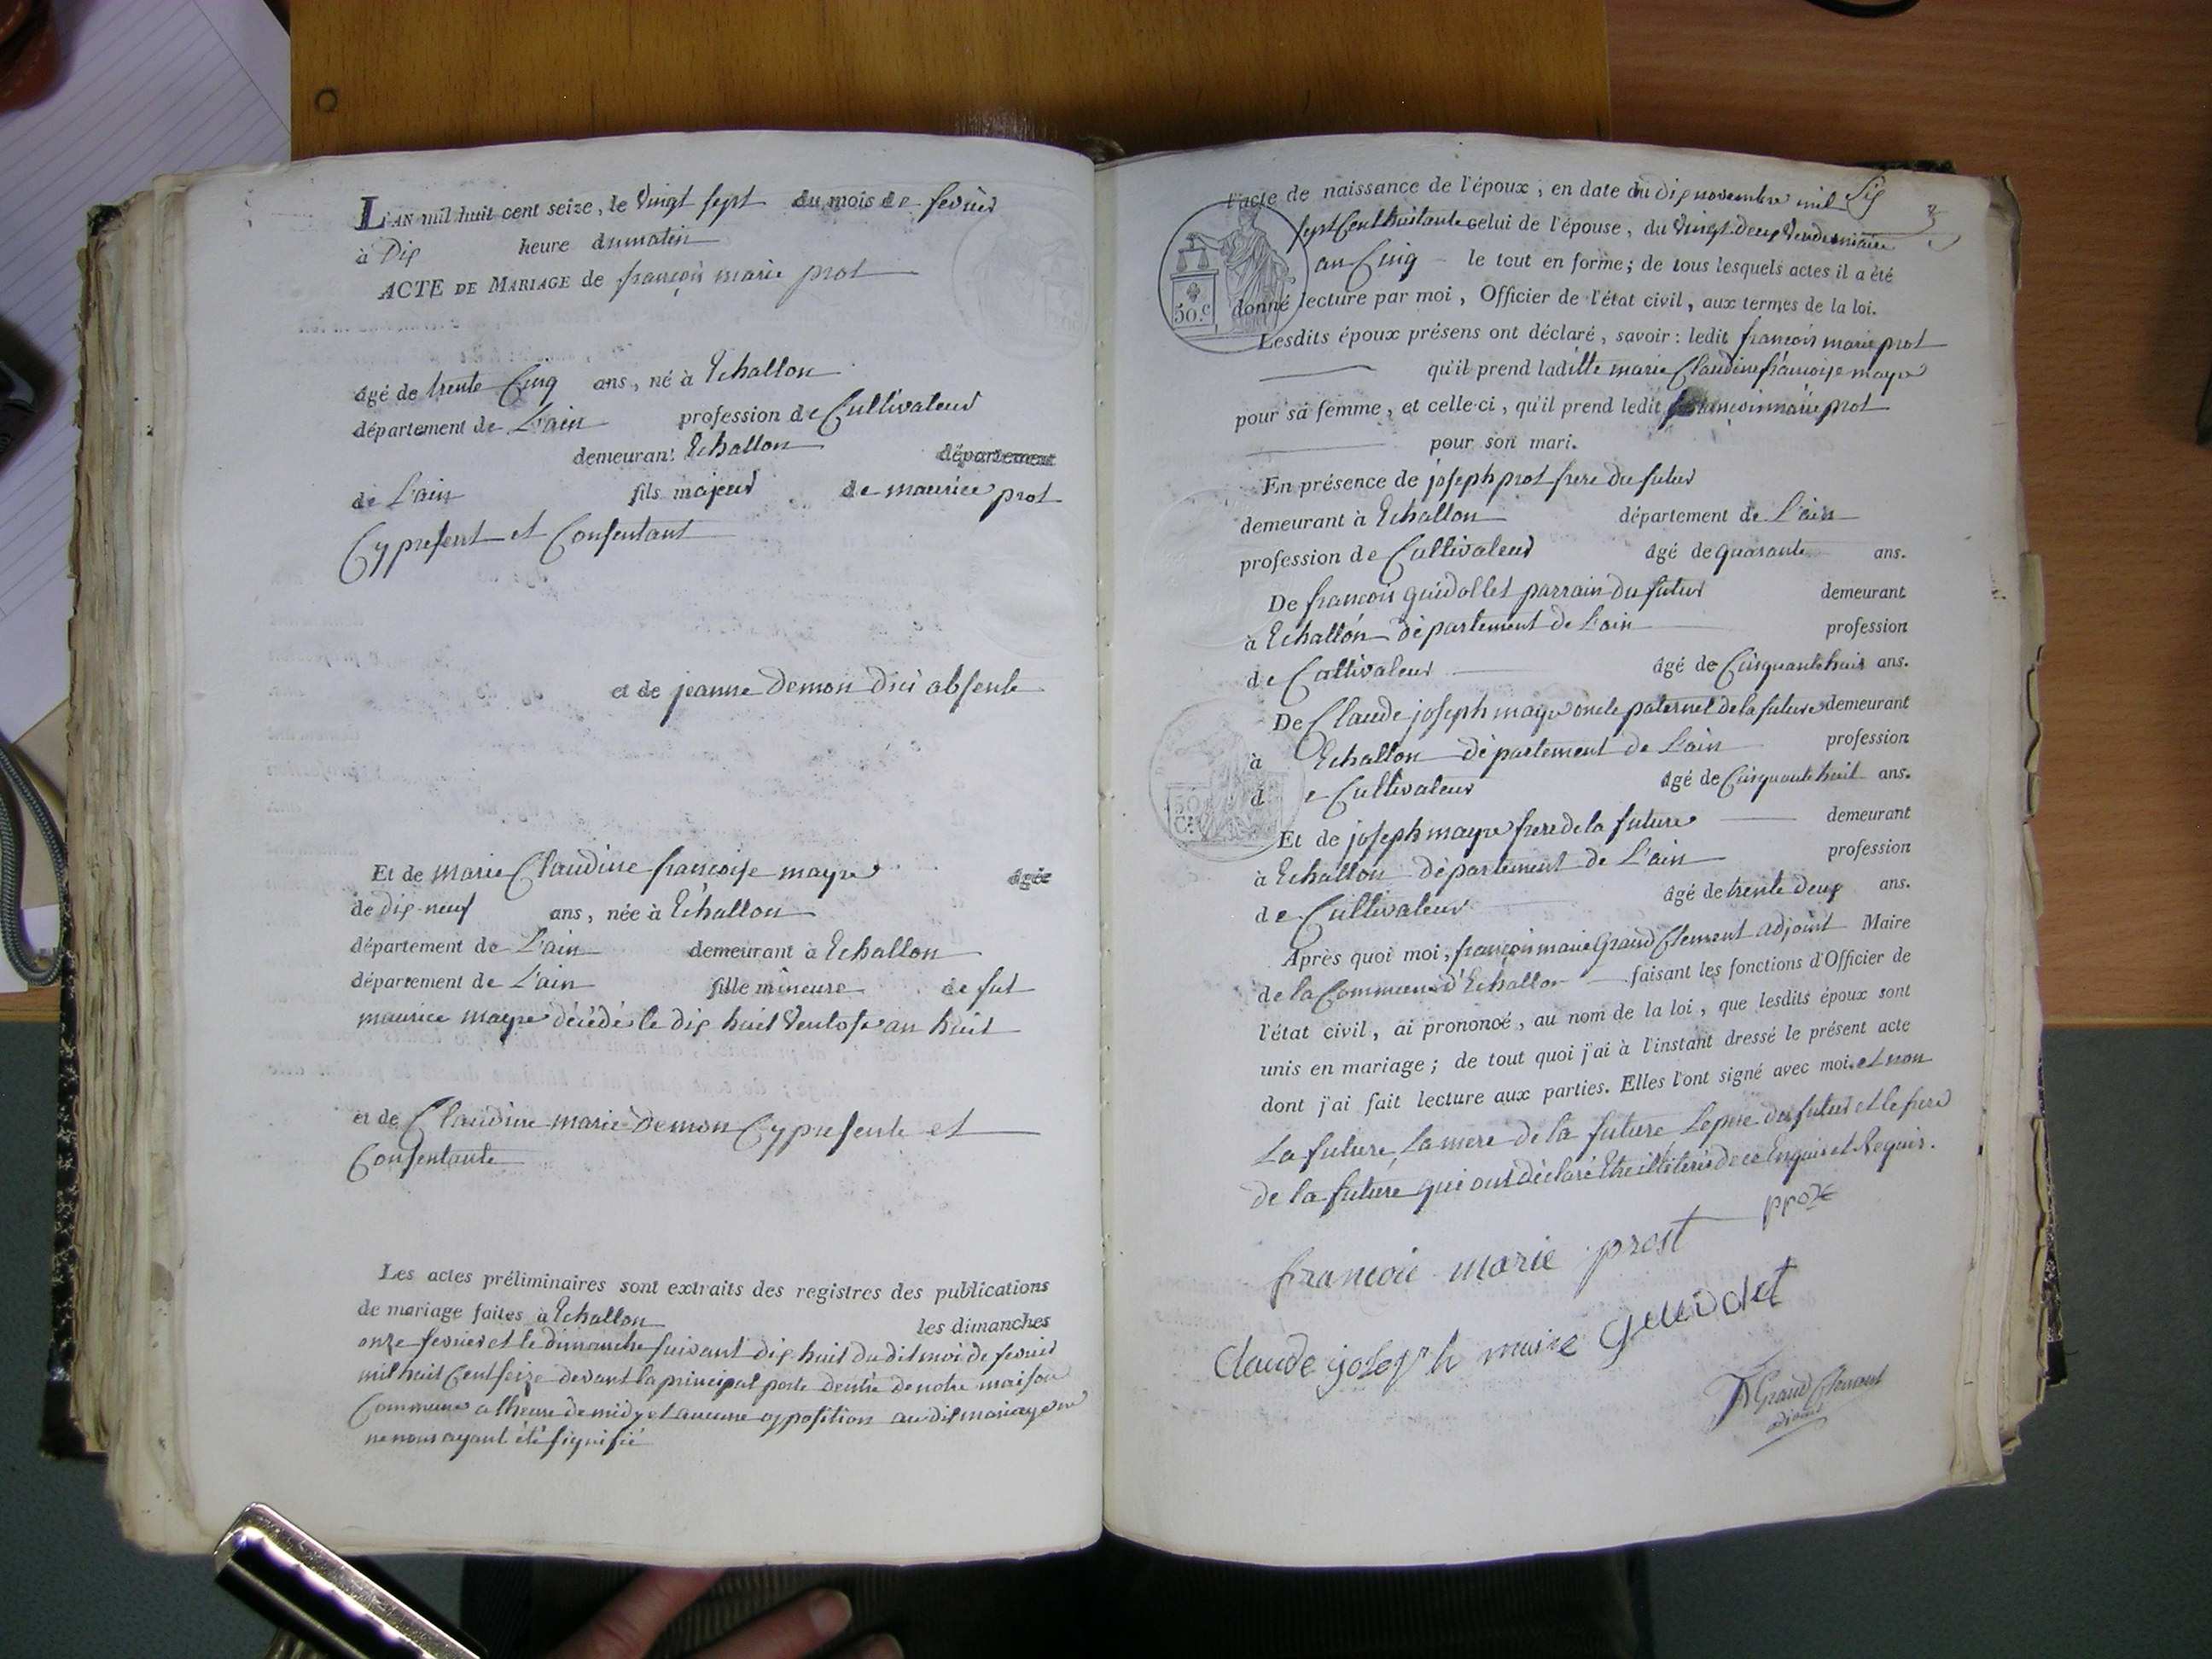 L'AN mil huit cent seize, le vingt sept du mois de fevrier
à Dix heure du matin
ACTE DE MARIAGE de françois marie prot
âgé de trente Cinq ans, né à Echallon
département de L'ain profession de Cultivateur
demeurant Echallon département
de L'ain fils majeur de maurice prot
Cy present et Consentant
et de jeanne Demon D'ici absente
Et de Marie Claudine françoise mayre âgée
de dix-neuf ans, née à Echallon
département de L'ain demeurant à Echallon
département de L'ain fille mineure de fut
maurice mayre décédé le dix huit Ventose an huit
et de Claudine marie Demon Cy presente et
Consentante
Les actes préliminaires sont extraits des registres des publications
de mariage faites à Echallon les dimanches
onze fevrier et le dimanche suivant dix huit du dit moi de fevrier
mil huit Cent seize devant la principal porte dentré de notre maison
Commune a lheure de midy et aucune opposition au dit mariage ne
ne nous ayant été signifié
l'acte de naissance de l'époux, en date du dix novembre mil
sept Cent huitante celui de l'épouse, du Vingt deux Vendemiaire
an Cinq le tout en forme; de tous lesquels actes il a été
donné lecture par moi, Officier de l'état civil, aux termes de la loi.
50.c
Lesdits époux présens ont déclaré, savoir: ledit françois marie prot
qu'il prend laditte marie Claudine françoise mayre
pour sa femme, et celle-ci, qu'il prend ledit françois marie prot
pour son mari.
En présence de joseph prot frere du futur
demeurant à Echallon département de L'ain
profession de Cultivateur âgé de quarante ans.
De francois guidollet parrain du futur demeurant
à Echallon département de L'ain profession
de Cultivateur âgé de Cinquante huit ans.
De Claude joseph mayre oncle paternel de la future demeurant
à Echallon département de L'ain profession
de Cultivateur âgé de Cinquante huit ans.
50 C.
Et de joseph mayre frere de la future demeurant
à Echallon département de L'ain profession
de Cultivateur âgé de trente deux ans.
Après quoi moi, françois marie Grand Clement adjoint Maire
de la Commune d'Echallon faisant les fonctions d'Officier de
l'état civil, ai prononcé, au nom de la loi, que lesdits époux sont
unis en mariage; de tout quoi j'ai à l'instant dressé le présent acte
dont j'ai fait lecture aux parties. Elles l'ont signé avec moi. et non
La future, La mere de la future Le pere du futur et le frere
de la future qui ont déclaré Etre illiterés de ce Enquis et Requis.
francoie marie prost prot
Claude joseph maire Guidolet
Grand Clement
adjoint